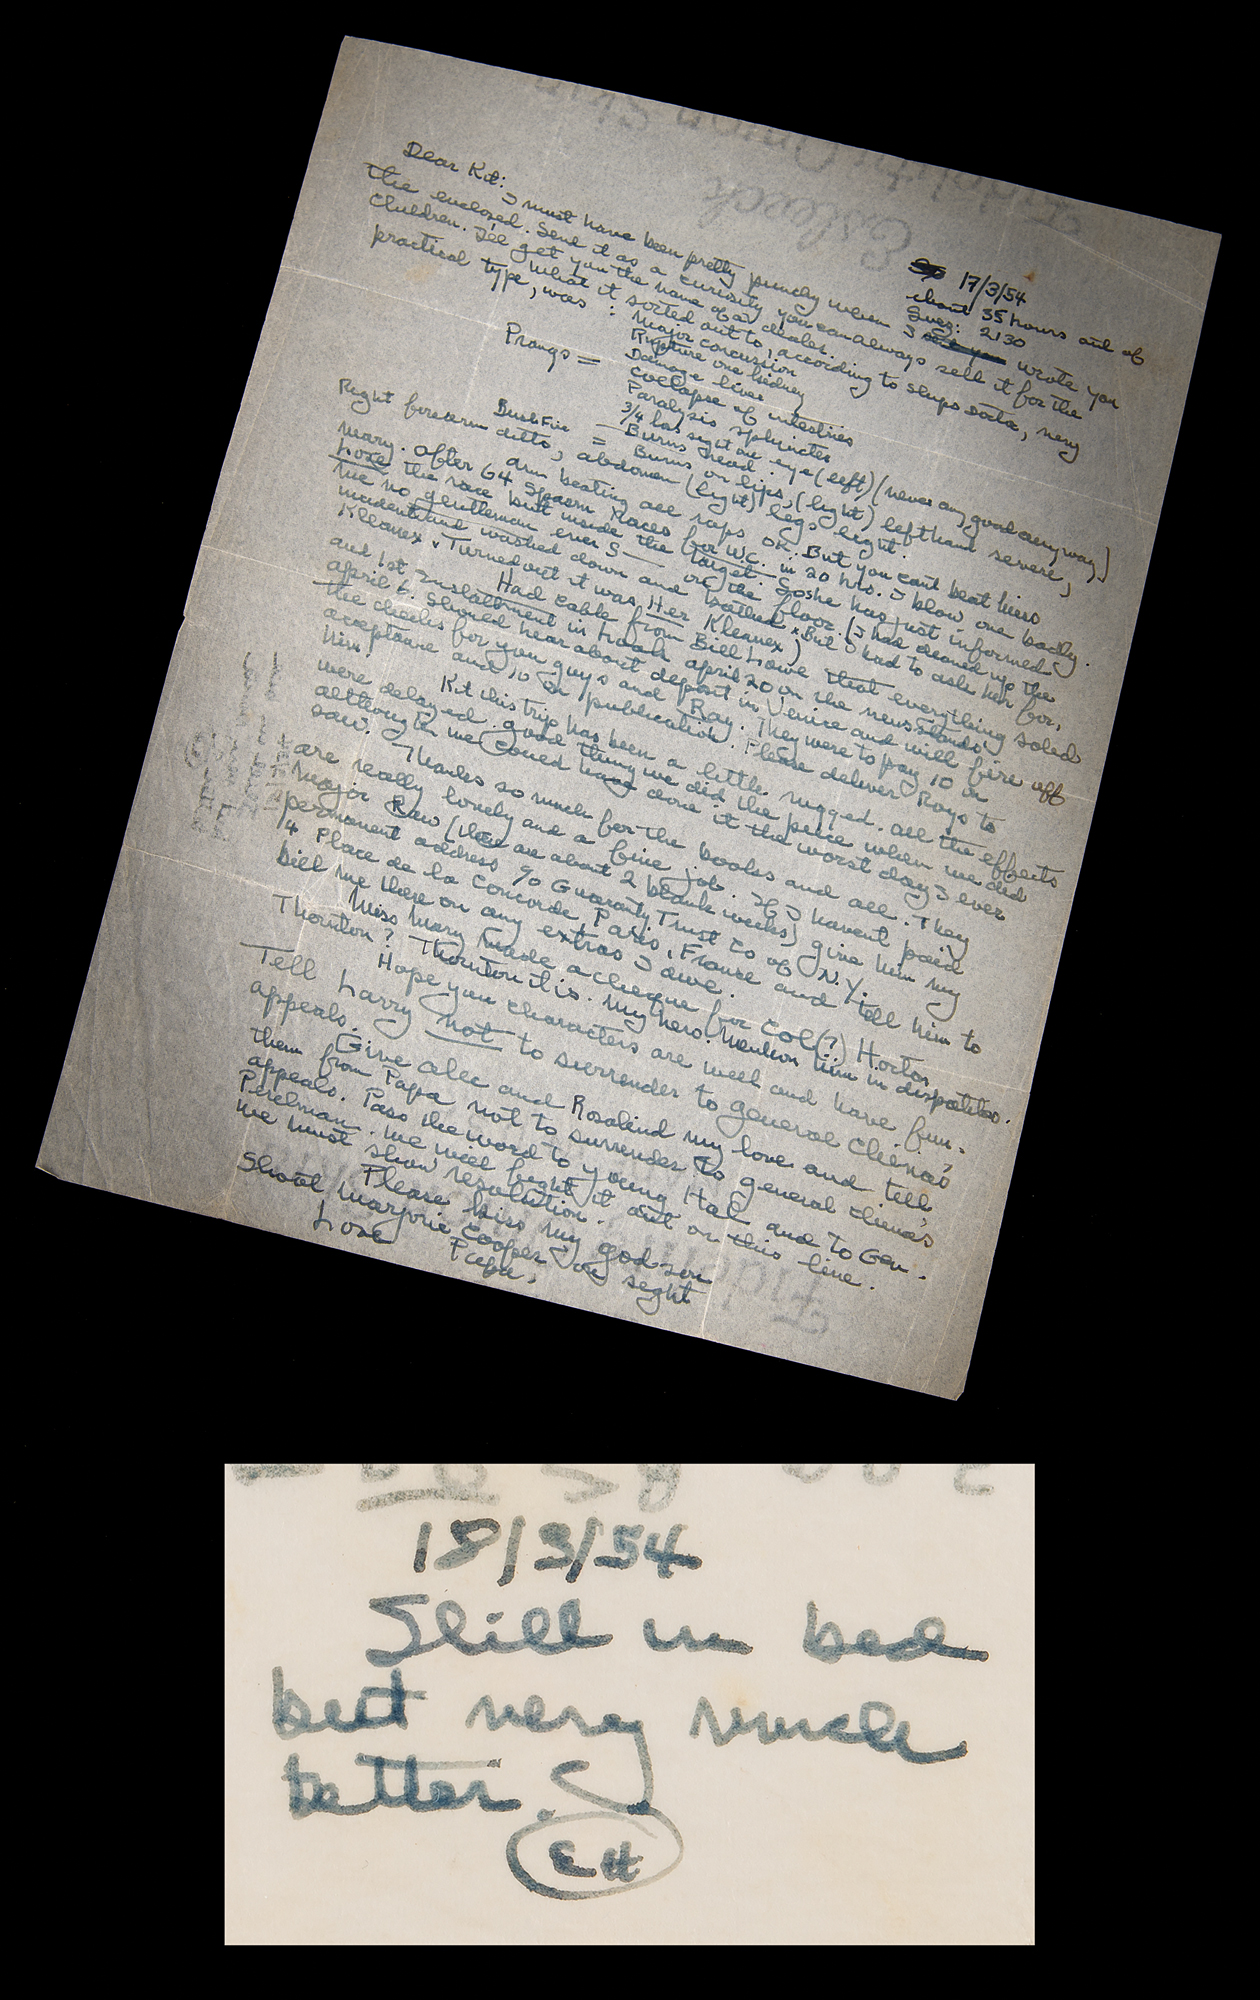 17/3/54
about 35 hours out of
Suez: 2130
Dear Kit:
I must have been pretty punchy when I wrote you
the enclosed. Send it as a curiosity you can always sell it for the
children. I'll get you the name of a dealer.
What it sorted out to, according to ships data, very
practical type, was:
Major concussion
Rupture one kidney
Prangs = Damage liver
Collapse of intestines
Paralysis sphincter
3/4 loss sight one eye (left) (never any good anyway)
Burns head.
Bush Fire = Burns on lips, (light) left hand severe,
Right forearm ditto, abdomen (light) legs light.
Am beating all raps OK. But you cant beat Miss
Mary. After 64 spasm races for W.C. in 20 hrs. I blow one badly.
Lose the race but inside the target. So she has just informed
me no gentleman ever S— on the floor. (I had cleaned up the
incident and washed down and bathed. But I had to ask her for,
Kleenex. Turned out it was Her Kleenex)
Had cable from Bill Lowe that everything solid
and 1st installment in Look April 20 on the newsstands,
April 6. Should hear about deposit in Venice and will fire off
the checks for you guys and Ray. They were to pay 10 on
acceptance and 10 on publication. Please deliver Rays to
him.
Kit this trip has been a little rugged. All the effects
were delayed. Good thing we did the piece when we did
although we could have done it the worst day I ever
saw.
Thanks so much for the books and all. They
are really lovely and a fine job. If I havent paid
Major Raw (there are about 2 blank weeks) give him my
permanent address c/o Guaranty Trust Co of N.Y.
4 Place de la Concorde, Paris, France and tell him to
bill me there on any extras I owe.
Miss Mary made a cheque for Col(?) Horton
Thornton? Thornton it is. My hero. Mention him in dispatches.
Hope you characters are well and have fun.
Tell Harry not to surrender to General Chinas
appeals.
Give Alec and Rosalind my love and tell
them from Papa not to surrender to General Chinas
appeals. Pass the word to young Hal and to Gen.
Perelman. We will fight it out on this line.
We must show resolution.
Please kiss my god-son
Shoot Marjorie Cooper on sight
Love
Papa.
18/3/54
Still in bed
but very much
better.
EH